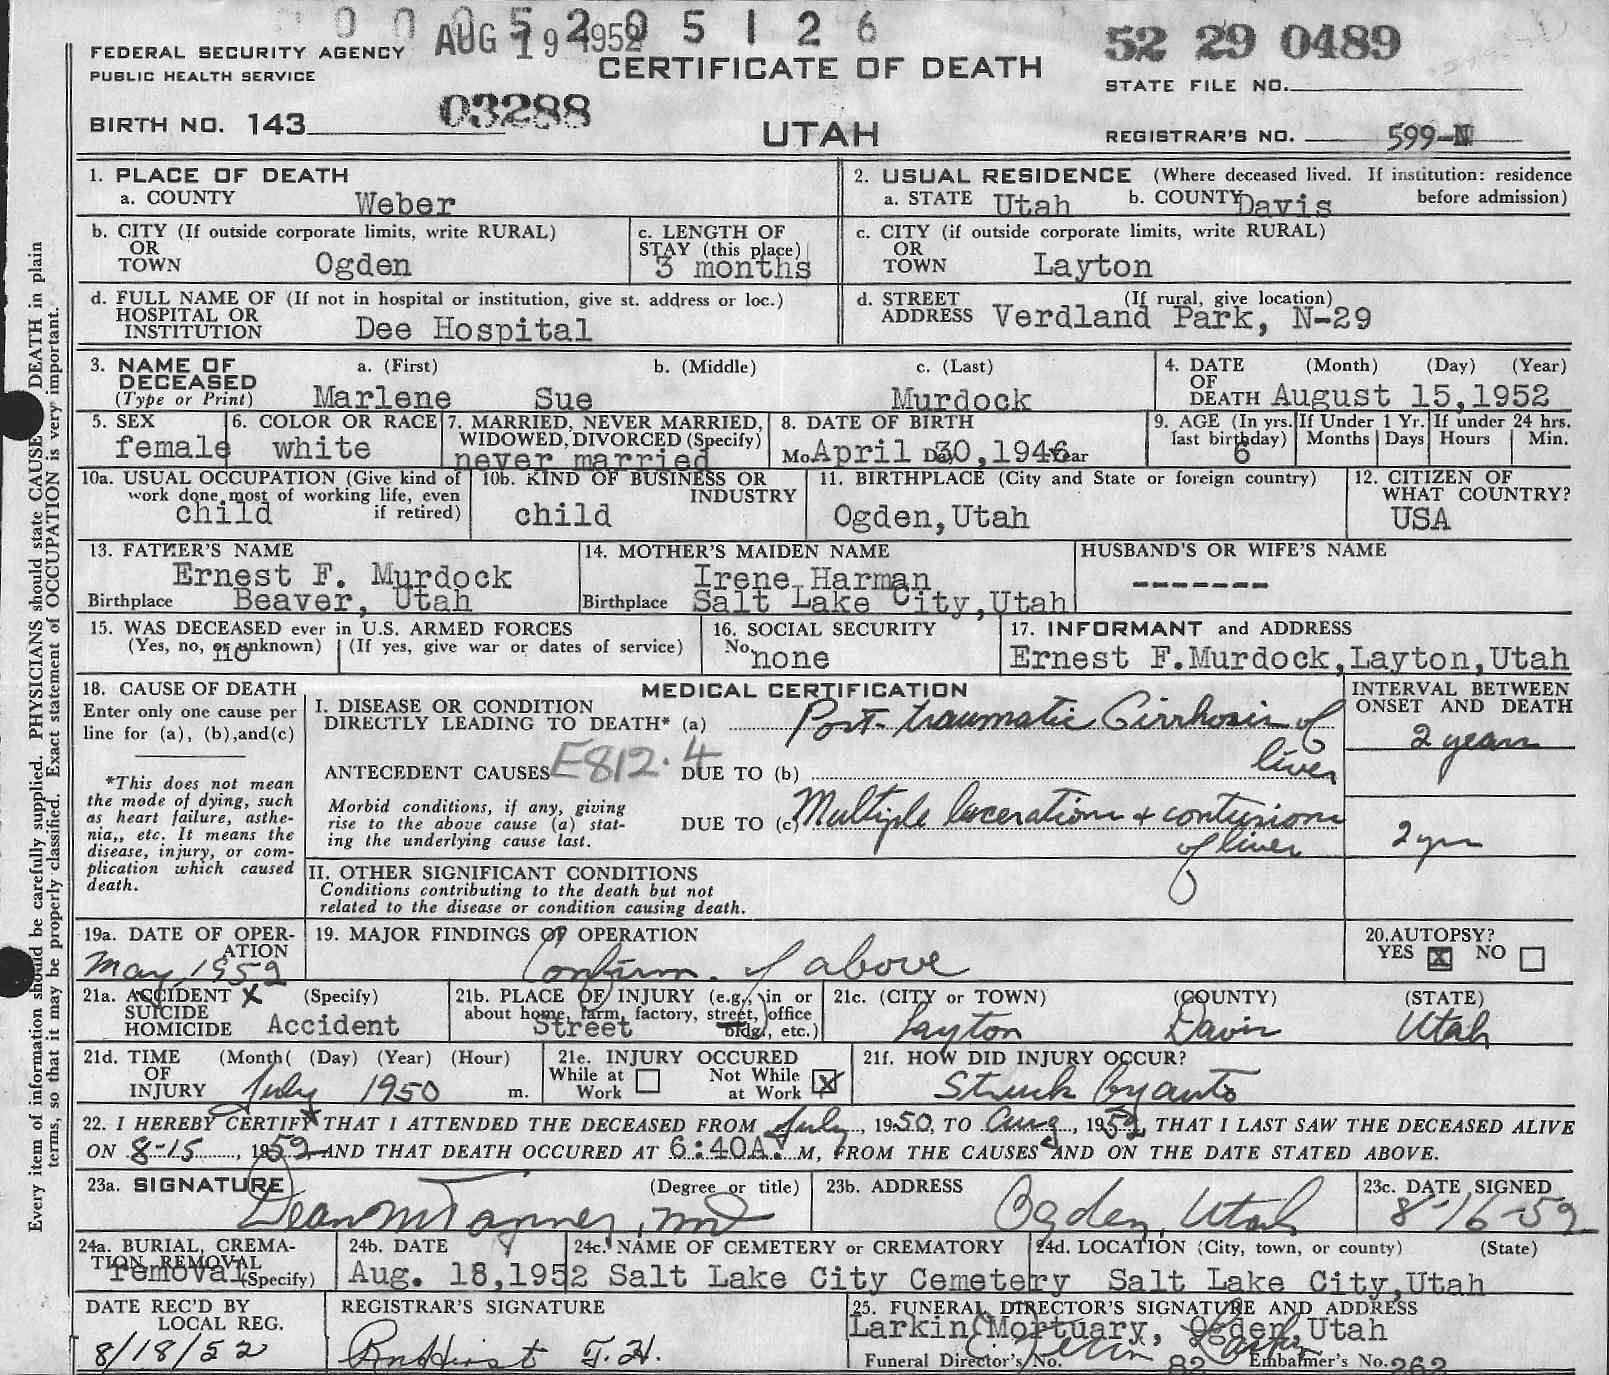 0 0 0 5 2 0 5 1 2 6
AUG 19 1952
52 29 0489
FEDERAL SECURITY AGENCY
PUBLIC HEALTH SERVICE
CERTIFICATE OF DEATH
STATE FILE NO.
BIRTH NO. 143 03288
UTAH
REGISTRAR'S NO. 599-N
1. PLACE OF DEATH
a. COUNTY Weber
2. USUAL RESIDENCE (Where deceased lived. If institution: residence
a. STATE Utah b. COUNTY Davis before admission)
b. CITY (If outside corporate limits, write RURAL)
OR
TOWN Ogden
c. LENGTH OF
STAY (this place)
3 months
c. CITY (if outside corporate limits, write RURAL)
OR
TOWN Layton
d. FULL NAME OF (If not in hospital or institution, give st. address or loc.)
HOSPITAL OR
INSTITUTION Dee Hospital
d. STREET (If rural, give location)
ADDRESS Verdland Park, N-29
3. NAME OF DECEASED (Type or Print)
a. (First) b. (Middle) c. (Last)
Marlene Sue Murdock
4. DATE (Month) (Day) (Year)
OF
DEATH August 15,1952
5. SEX
female
6. COLOR OR RACE
white
7. MARRIED, NEVER MARRIED,
WIDOWED, DIVORCED (Specify)
never married
8. DATE OF BIRTH
Mo. April Day 30,1946 Year
9. AGE (In yrs. last birthday)
6
If Under 1 Yr. Months Days
If under 24 hrs. Hours Min.
10a. USUAL OCCUPATION (Give kind of
work done most of working life, even
if retired)
child
10b. KIND OF BUSINESS OR
INDUSTRY
child
11. BIRTHPLACE (City and State or foreign country)
Ogden,Utah
12. CITIZEN OF
WHAT COUNTRY?
USA
13. FATHER'S NAME
Ernest F. Murdock
Birthplace Beaver, Utah
14. MOTHER'S MAIDEN NAME
Irene Harman
Birthplace Salt Lake City,Utah
HUSBAND'S OR WIFE'S NAME
-------
15. WAS DECEASED ever in U.S. ARMED FORCES
(Yes, no, or unknown) (If yes, give war or dates of service)
no
16. SOCIAL SECURITY
No. none
17. INFORMANT and ADDRESS
Ernest F.Murdock,Layton,Utah
18. CAUSE OF DEATH
Enter only one cause per
line for (a), (b),and(c)
*This does not mean
the mode of dying, such
as heart failure, asthe-
nia,, etc. It means the
disease, injury, or com-
plication which caused
death.
MEDICAL CERTIFICATION
INTERVAL BETWEEN
ONSET AND DEATH
I. DISEASE OR CONDITION
DIRECTLY LEADING TO DEATH* (a) Post-traumatic Cirrhosis of
liver
2 years
ANTECEDENT CAUSES E812.4 DUE TO (b)
Morbid conditions, if any, giving
rise to the above cause (a) stat-
ing the underlying cause last.
DUE TO (c) Multiple lacerations + contusions
of liver
2 yrs
II. OTHER SIGNIFICANT CONDITIONS
Conditions contributing to the death but not
related to the disease or condition causing death.
19a. DATE OF OPER-
ATION
May, 1952
19. MAJOR FINDINGS OF OPERATION
Confirm. of above
20.AUTOPSY?
YES X NO
21a. ACCIDENT X (Specify)
SUICIDE
HOMICIDE Accident
21b. PLACE OF INJURY (e.g., in or
about home, farm, factory, street, office
bldg., etc.)
Street
21c. (CITY or TOWN) (COUNTY) (STATE)
Layton Davis Utah
21d. TIME (Month( (Day) (Year) (Hour)
OF
INJURY July 1950 m.
21e. INJURY OCCURED
While at Work
Not While at Work X
21f. HOW DID INJURY OCCUR?
Struck by auto
22. I HEREBY CERTIFY THAT I ATTENDED THE DECEASED FROM July, 1950, TO Aug, 1952, THAT I LAST SAW THE DECEASED ALIVE
ON 8-15, 1952 AND THAT DEATH OCCURED AT 6:40A. M, FROM THE CAUSES AND ON THE DATE STATED ABOVE.
23a. SIGNATURE (Degree or title)
Dean M Tanner, MD
23b. ADDRESS
Ogden, Utah
23c. DATE SIGNED
8-16-52
24a. BURIAL, CREMA-
TION REMOVAL (Specify)
removal
24b. DATE
Aug. 18,1952
24c. NAME OF CEMETERY or CREMATORY
Salt Lake City Cemetery
24d. LOCATION (City, town, or county) (State)
Salt Lake City,Utah
DATE REC'D BY
LOCAL REG.
8/18/52
REGISTRAR'S SIGNATURE
25. FUNERAL DIRECTOR'S SIGNATURE AND ADDRESS
Larkin Mortuary, Ogden,Utah
Funeral Director's No. 82 Embalmer's No. 262
Every item of information should be carefully supplied. PHYSICIANS should state CAUSE DEATH in plain
terms, so that it may be properly classified. Exact statement of OCCUPATION is very important.